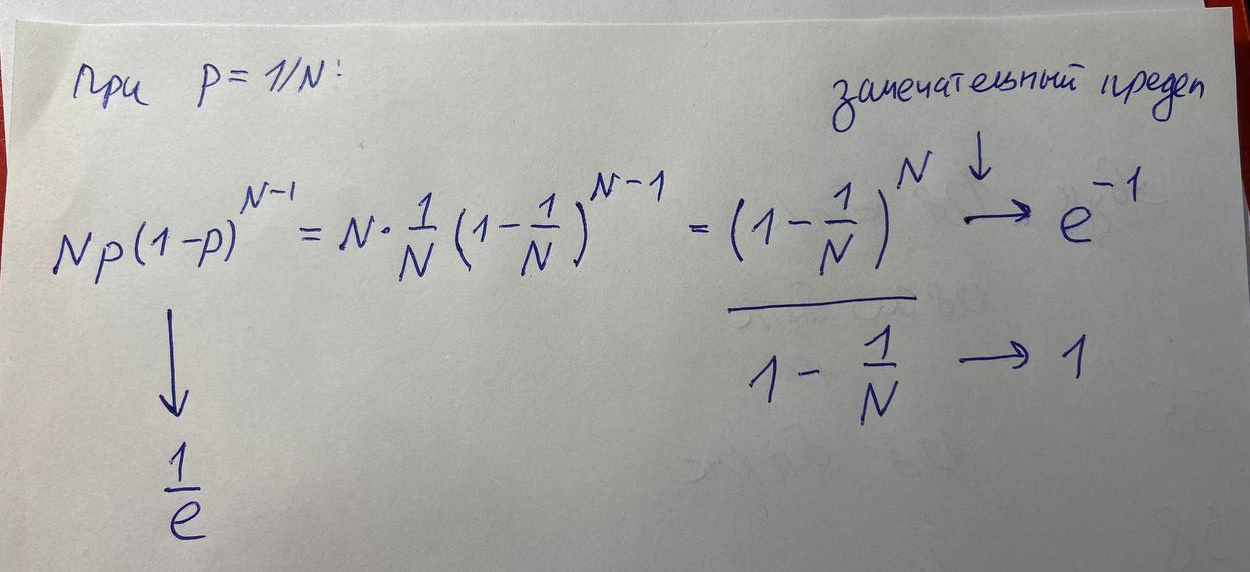 При p = 1/N:
замечательный предел
↓
Np(1-p)^{N-1} = N · \frac{1}{N} (1 - \frac{1}{N})^{N-1} = \frac{(1 - \frac{1}{N})^{N}}{1 - \frac{1}{N}}
(1 - \frac{1}{N})^{N} → e^{-1}
1 - \frac{1}{N} → 1
↓
\frac{1}{e}